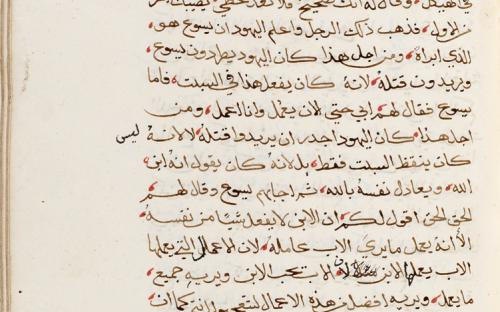 في الهيكل، وقال له انك صحيح فلا تعد تخطي
من الاول، فذهب ذلك الرجل واعلم اليهود ان يسوع هو،
الذي ابراه، ومن اجل هذا كان اليهود يطردون يسوع،
ويريدون قتله، لانه كان يفعل هذا في السبت، فاما
يسوع فقال لهم ابي حتي لان يعمل وانا اعمل، ومن
اجل هذا كان اليهود اجدر ان يريدوا قتله، لا لانه ليس
كان ينقض السبت فقط، بل لانه كان يقول انه ابن
الله، ويعادل نفسه بالله، ثم اجابهم يسوع وقال لهم
الحق الحق اقول لكم، ان الابن لا يفعل شيئا من نفسه،
الا انه يعمل ما يري الاب عامله، لان الاعمال التي يعملها
الاب يعملها الابن لان الاب يحب الابن ويريه جميع،
ما يعمل، ويريه افضل من هذه الاعمال لتتعجبوا انتم، كما ان